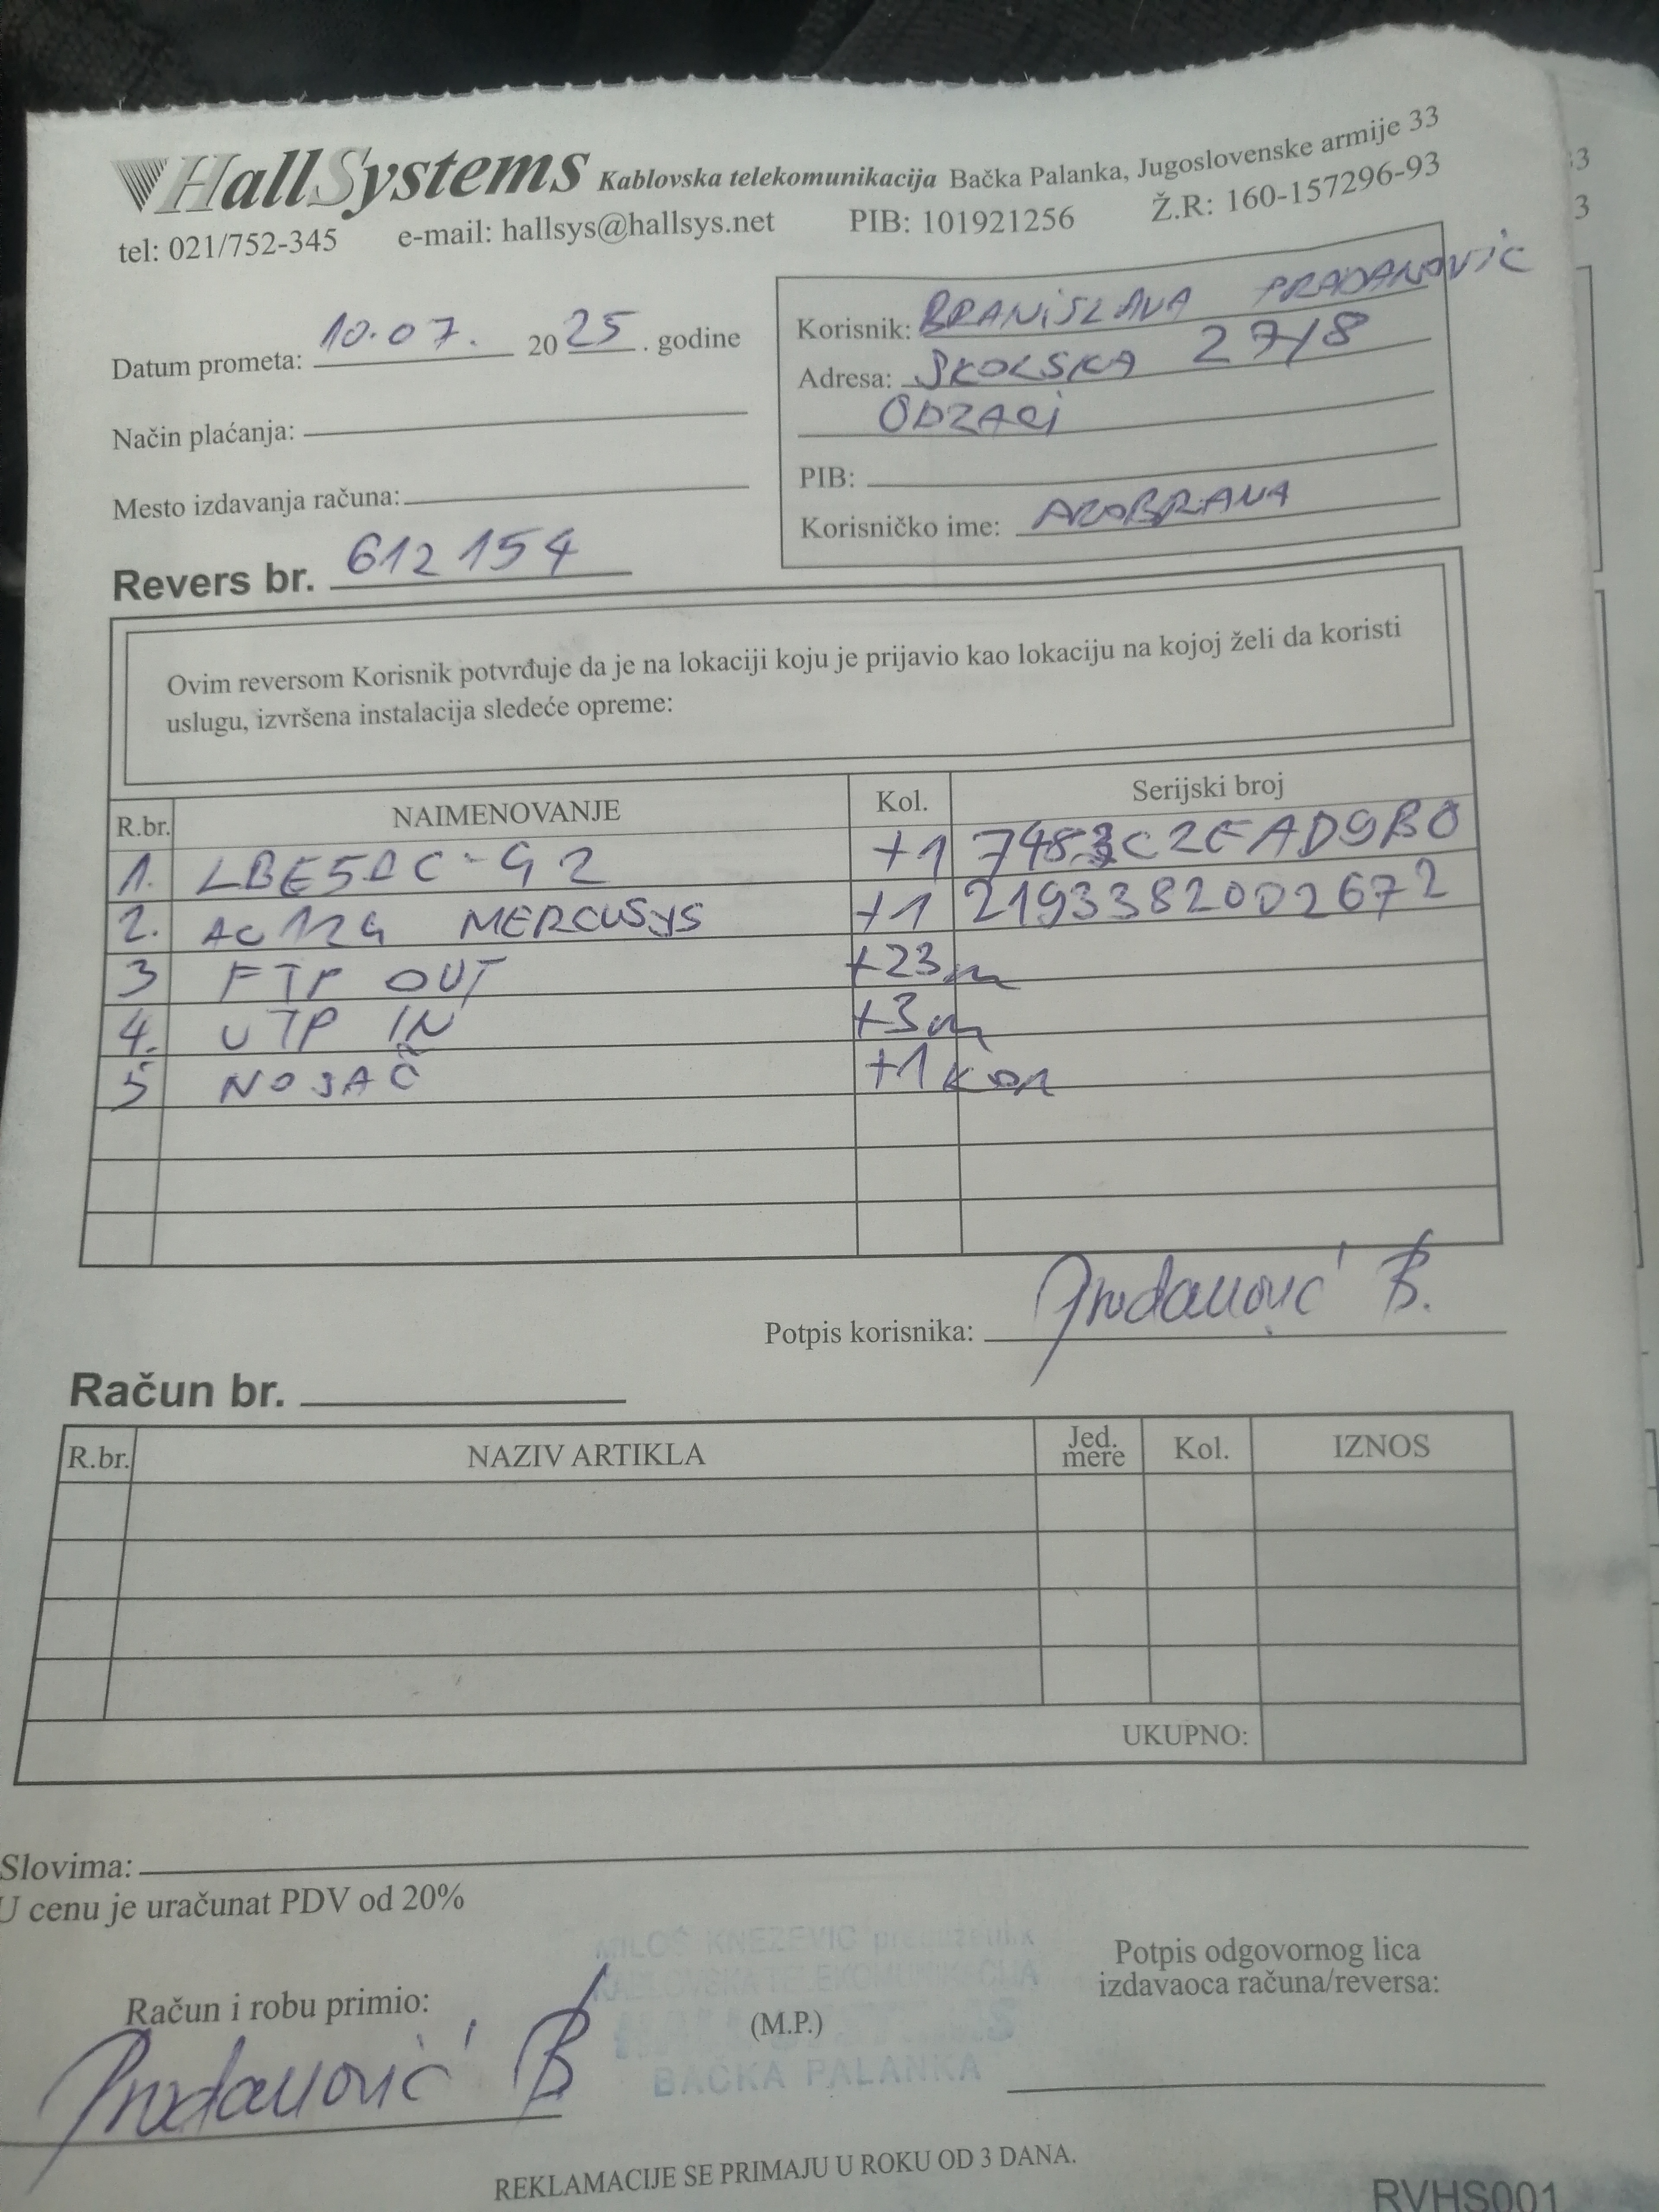 HallSystems Kablovska telekomunikacija Bačka Palanka, Jugoslovenske armije 33
tel: 021/752-345 e-mail: hallsys@hallsys.net PIB: 101921256 Ž.R: 160-157296-93
Datum prometa: 10.07. 2025. godine
Način plaćanja:
Mesto izdavanja računa:
Korisnik: BRANiSLAVA PRADANOVić
Adresa: ŠKOLSKA 27/8
ODZACi
PIB:
Korisničko ime: AROBRANA
Revers br. 612154
Ovim reversom Korisnik potvrđuje da je na lokaciji koju je prijavio kao lokaciju na kojoj želi da koristi
uslugu, izvršena instalacija sledeće opreme:
R.br. NAIMENOVANJE Kol. Serijski broj
1. LBE5AC-G2 +1 7483C2EAD9B0
2. AC12G MERCUSYS +1 2193382002672
3 FTP OUT +23m
4. UTP IN +3m
5 NOSAČ +1 kom
Potpis korisnika: Prodanović B.
Račun br.
R.br. NAZIV ARTIKLA Jed. mere Kol. IZNOS
UKUPNO:
Slovima:
U cenu je uračunat PDV od 20%
MILOŠ KNEZEVIC preduzetnik
KABLOVSKA TELEKOMUNIKACIJA
BAČKA PALANKA
Račun i robu primio:
Prodanović B
(M.P.)
Potpis odgovornog lica
izdavaoca računa/reversa:
REKLAMACIJE SE PRIMAJU U ROKU OD 3 DANA.
RVHS001